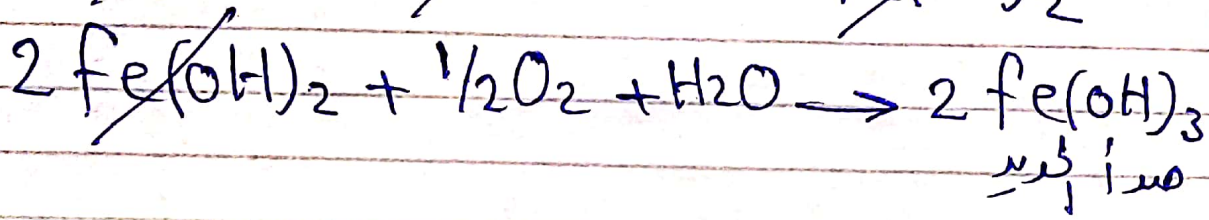 2 Fe(OH)2 + 1/2 O2 + H2O → 2 Fe(OH)3
صدأ الحديد